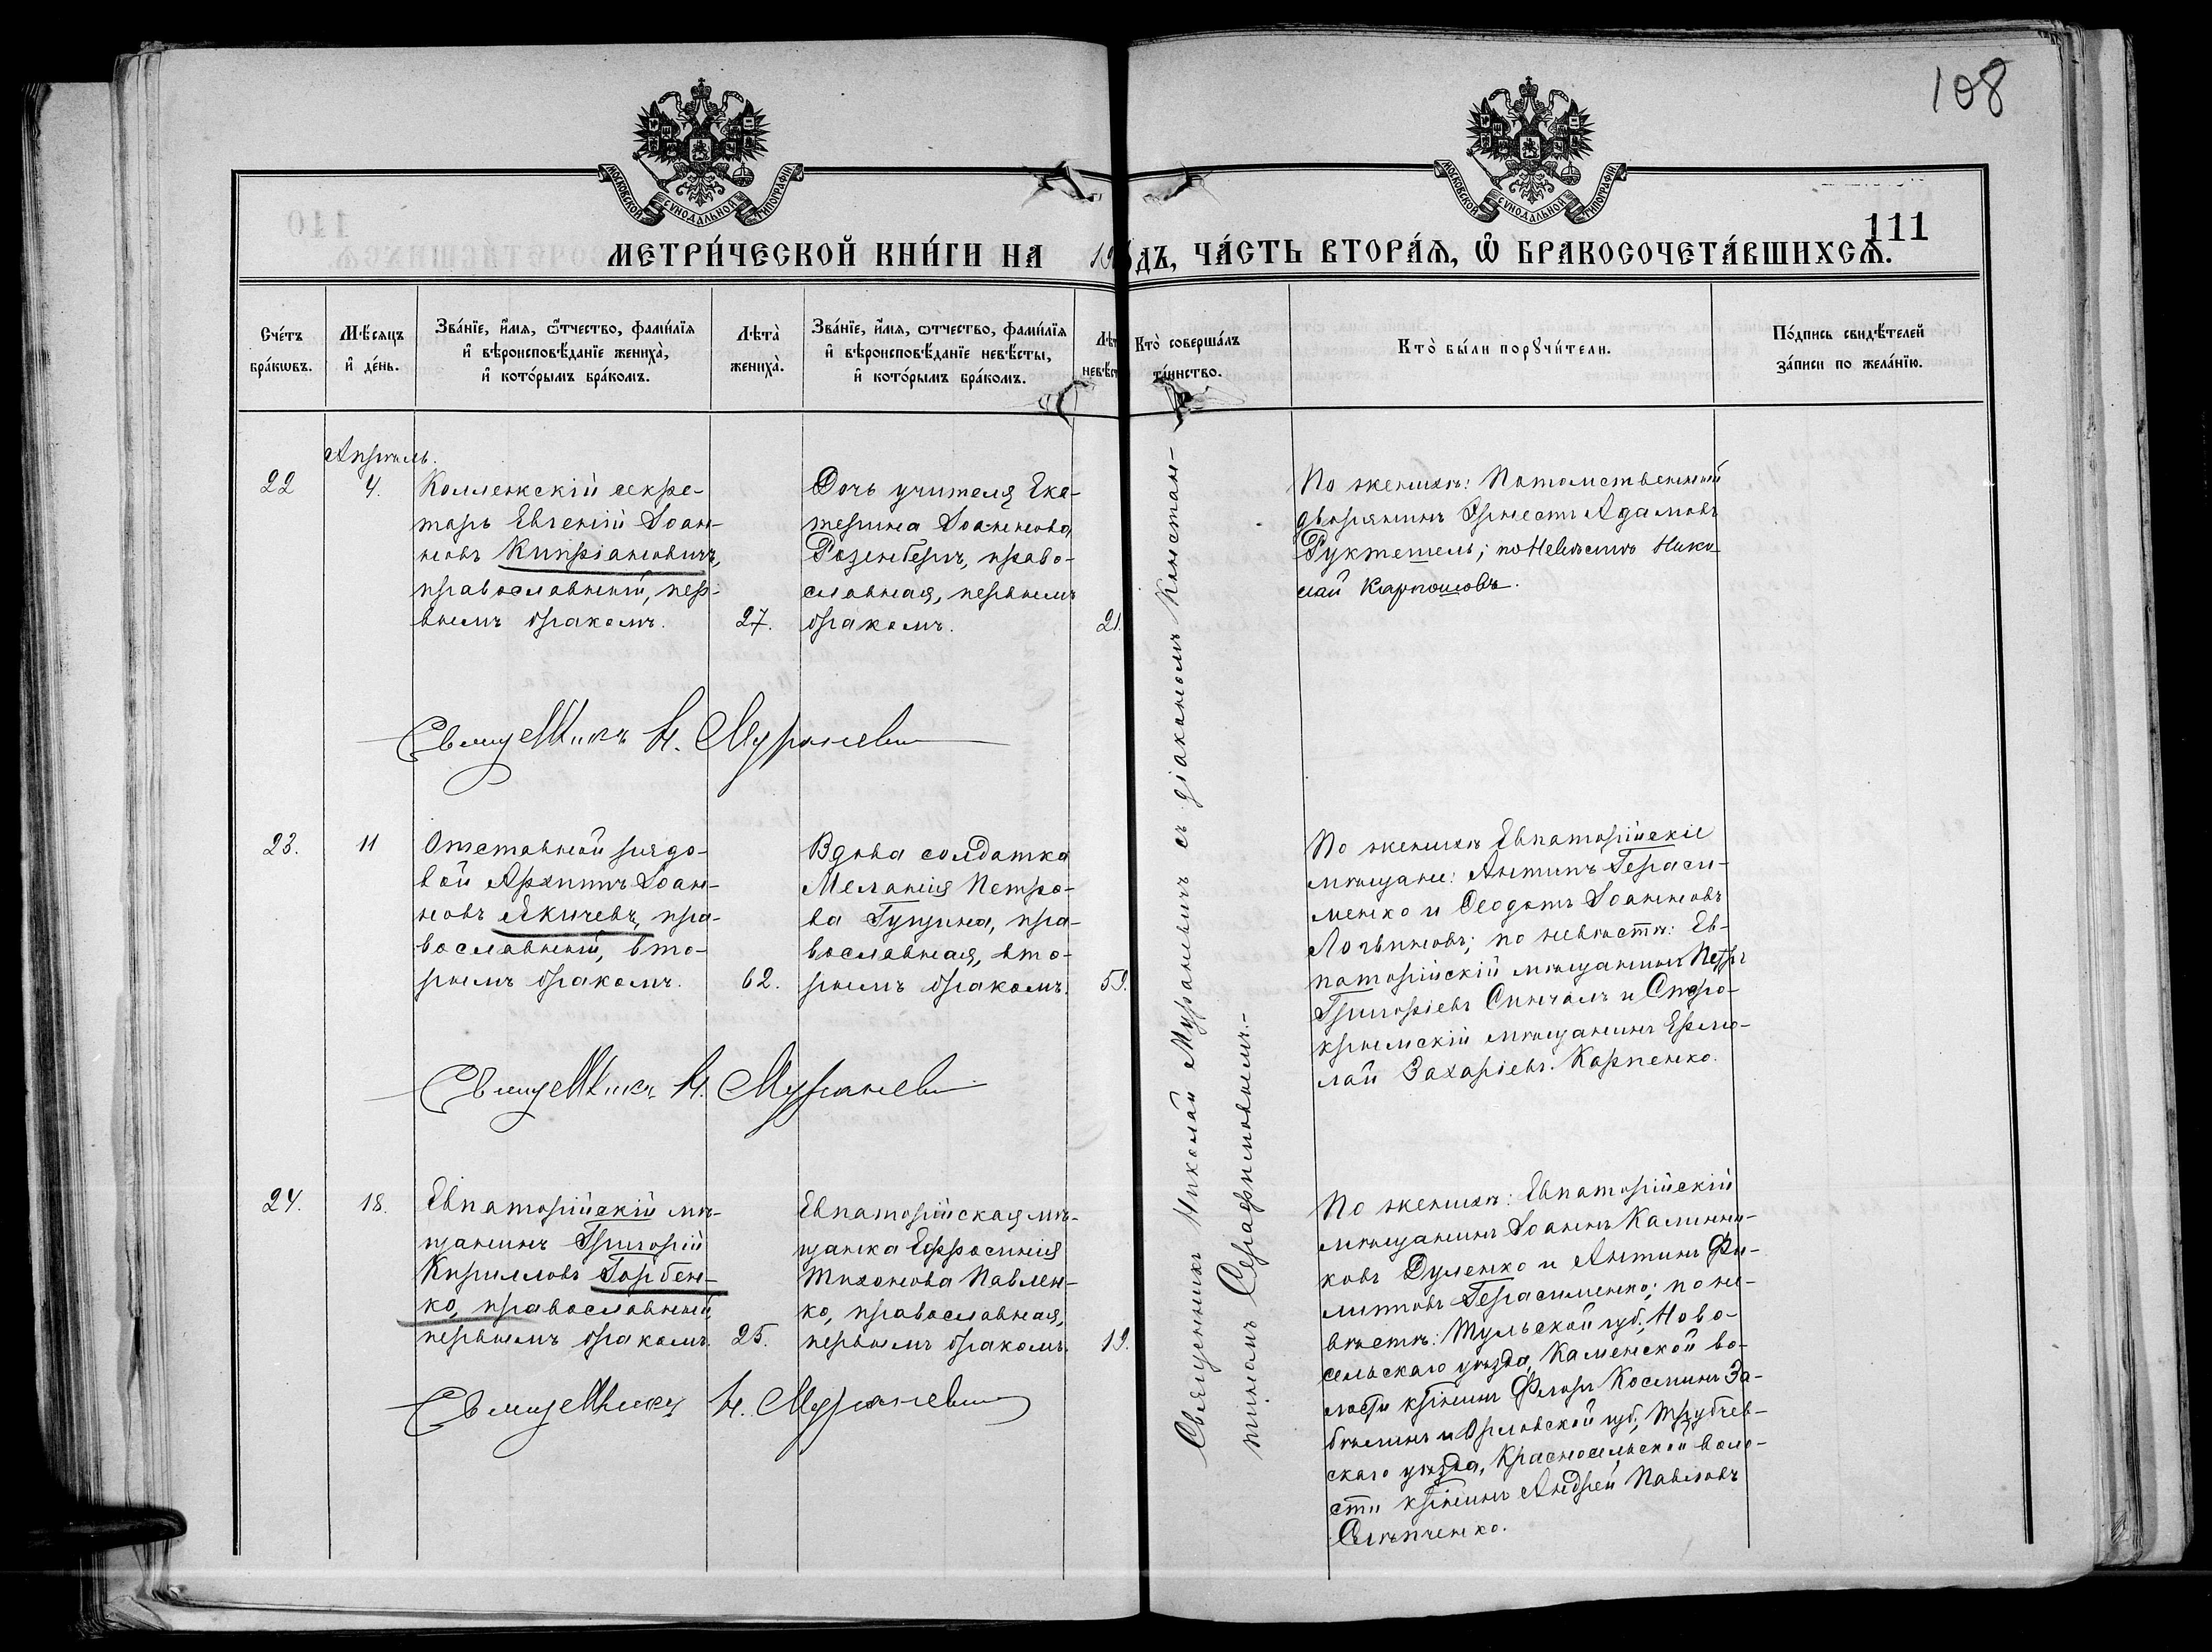 108
МОСКОВСКОЙ СѴНОДАЛЬНОЙ ТИПОГРАФІИ
МОСКОВСКОЙ СѴНОДАЛЬНОЙ ТИПОГРАФІИ
111
МЕТРИ́ЧЕСКОЙ КНИ́ГИ НА 19 ДЪ, ЧА́СТЬ ВТОРА́Ѧ, Ѽ БРАКОСОЧЕТА́ВШИХСѦ.
Сче́тъ
бра́кѡвъ.
Мѣ́сѧцъ
и҆ де́нь.
Зва́нїе, и҆́мѧ, ѻ҆́тчество, фами́лїѧ
и҆ вѣроисповѣ́данїе жениха̀,
и҆ кото́рымъ бра́комъ.
Лѣта̀
жениха̀.
Зва́нїе, и҆́мѧ, ѻ҆тчество, фами́лїѧ
и҆ вѣроисповѣ́данїе невѣ́сты,
и҆ кото́рымъ бра́комъ.
Кто̀ соверша́лъ
та́инство.
Кто̀ бы́ли порꙋчи́тели.
По́дпись свидѣ́телей
за́писи по жела́нїю.
Апрѣль.
22
4.
Коллежскій секре-
тарь Евгеній Іоан-
новъ Кипріановичъ,
православный, пер-
вымъ бракомъ.
27.
Дочь учителя Ека-
терина Іоаннова
Розенбергъ, право-
славная, первымъ
бракомъ.
21.
Священникъ Николай Мураневичъ съ діакономъ Констан-
тиномъ Серафимовымъ.-
По женихѣ: Потомственный
дворянинъ Эрнестъ Адамовъ
Руктешель; по невѣстѣ Нико-
лай Карпошовъ.
Священникъ Н. Мураневич
23.
11
Отставной рядо-
вой Архипъ Іоан-
новъ Якичевъ, пра-
вославный, вто-
рымъ бракомъ.
62.
Вдова солдатка
Меланія Петро-
ва Гущина, пра-
вославная, вто-
рымъ бракомъ.
59.
По женихѣ Евпаторійскіе
мѣщане: Антипъ Гераси-
менко и Ѳеодотъ Іоанновъ
Логвиновъ; по невѣстѣ: Ев-
паторійскій мѣщанинъ Петръ
Григорьевъ Спичалъ и Старо-
крымскій мѣщанинъ Ермо-
лай Захаріевъ Карпенко.
Священникъ Н. Мураневич
24.
18.
Евпаторійскій мѣ-
щанинъ Григорій
Кирилловъ Горбен-
ко, православный,
первымъ бракомъ.
25.
Евпаторійская мѣ-
щанка Евфросинія
Тихонова Павлен-
ко, православная,
первымъ бракомъ.
19.
По женихѣ: Евпаторійскій
мѣщанинъ Іоаннъ Калинни-
ковъ Дуленко и Антипъ Фи-
липповъ Герасименко; по не-
вѣстѣ: Тульской губ., Ново-
сельскаго уѣзда, Каменской во-
лости кр-нинъ Флоръ Косминъ За-
бѣлинъ и Орловской губ., Трубчев-
скаго уѣзда, Красносельской воло-
сти кр-нинъ Андрей Павловъ
Слѣпченко.
Священникъ Н. Мураневич